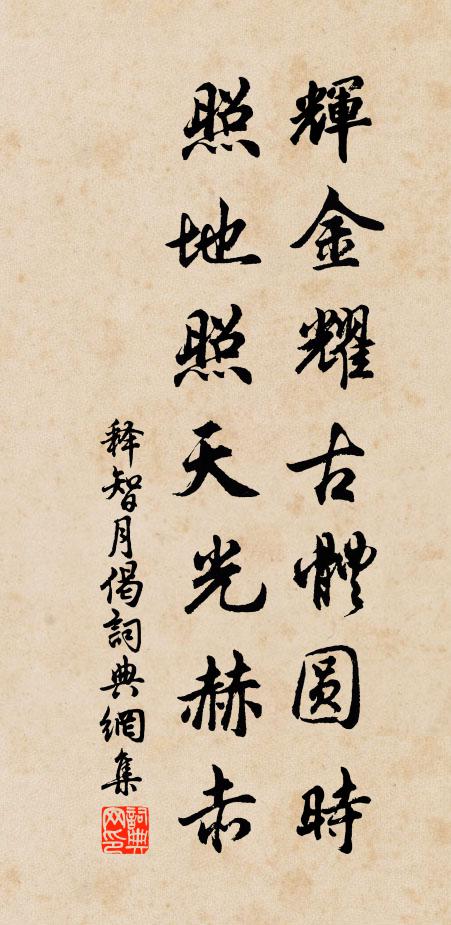 輝金耀古體圆時
照地照天光赫赤
释智月偈詞典網集
詞典网印